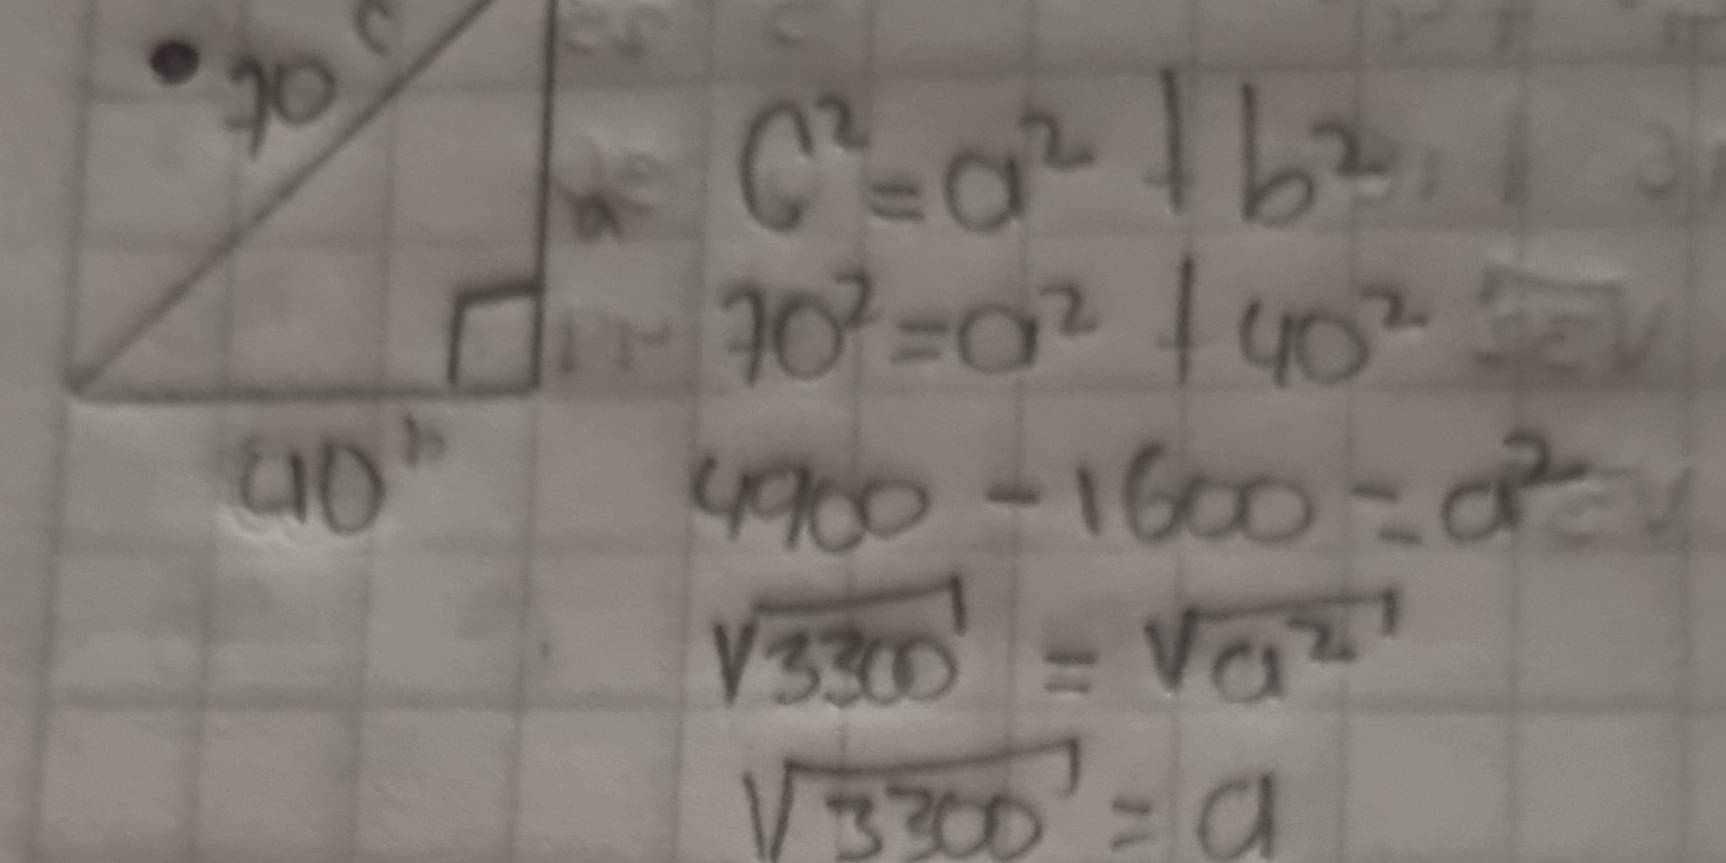 c
70
a
40
C² = a² + b²
70² = a² + 40²
4900 - 1600 = a²
√3300 = √a²
√3300 = a